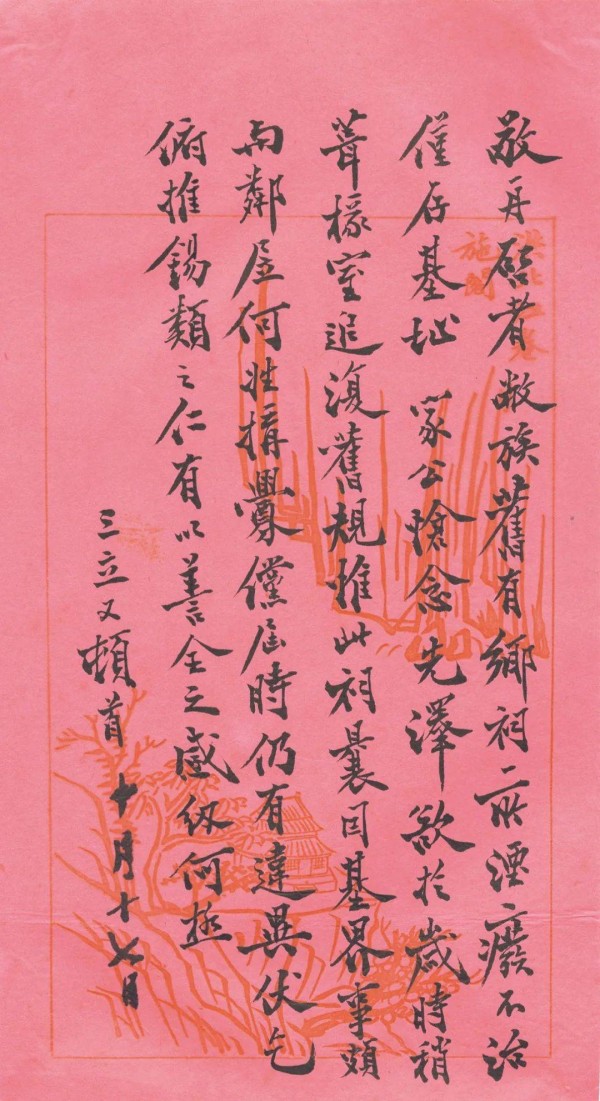 洪北江卷
施閣
敬再啓者敝族舊有鄉祠一所湮廢不治
僅存基址 家公愴念先澤欲於歲時稍
葺椽室追復舊規惟此祠曩因基界事頗
与鄰居何姓搆釁儻屆時仍有違異伏乞
俯推錫類之仁有以善全之感紉何極
三立又頓首 十月十七日